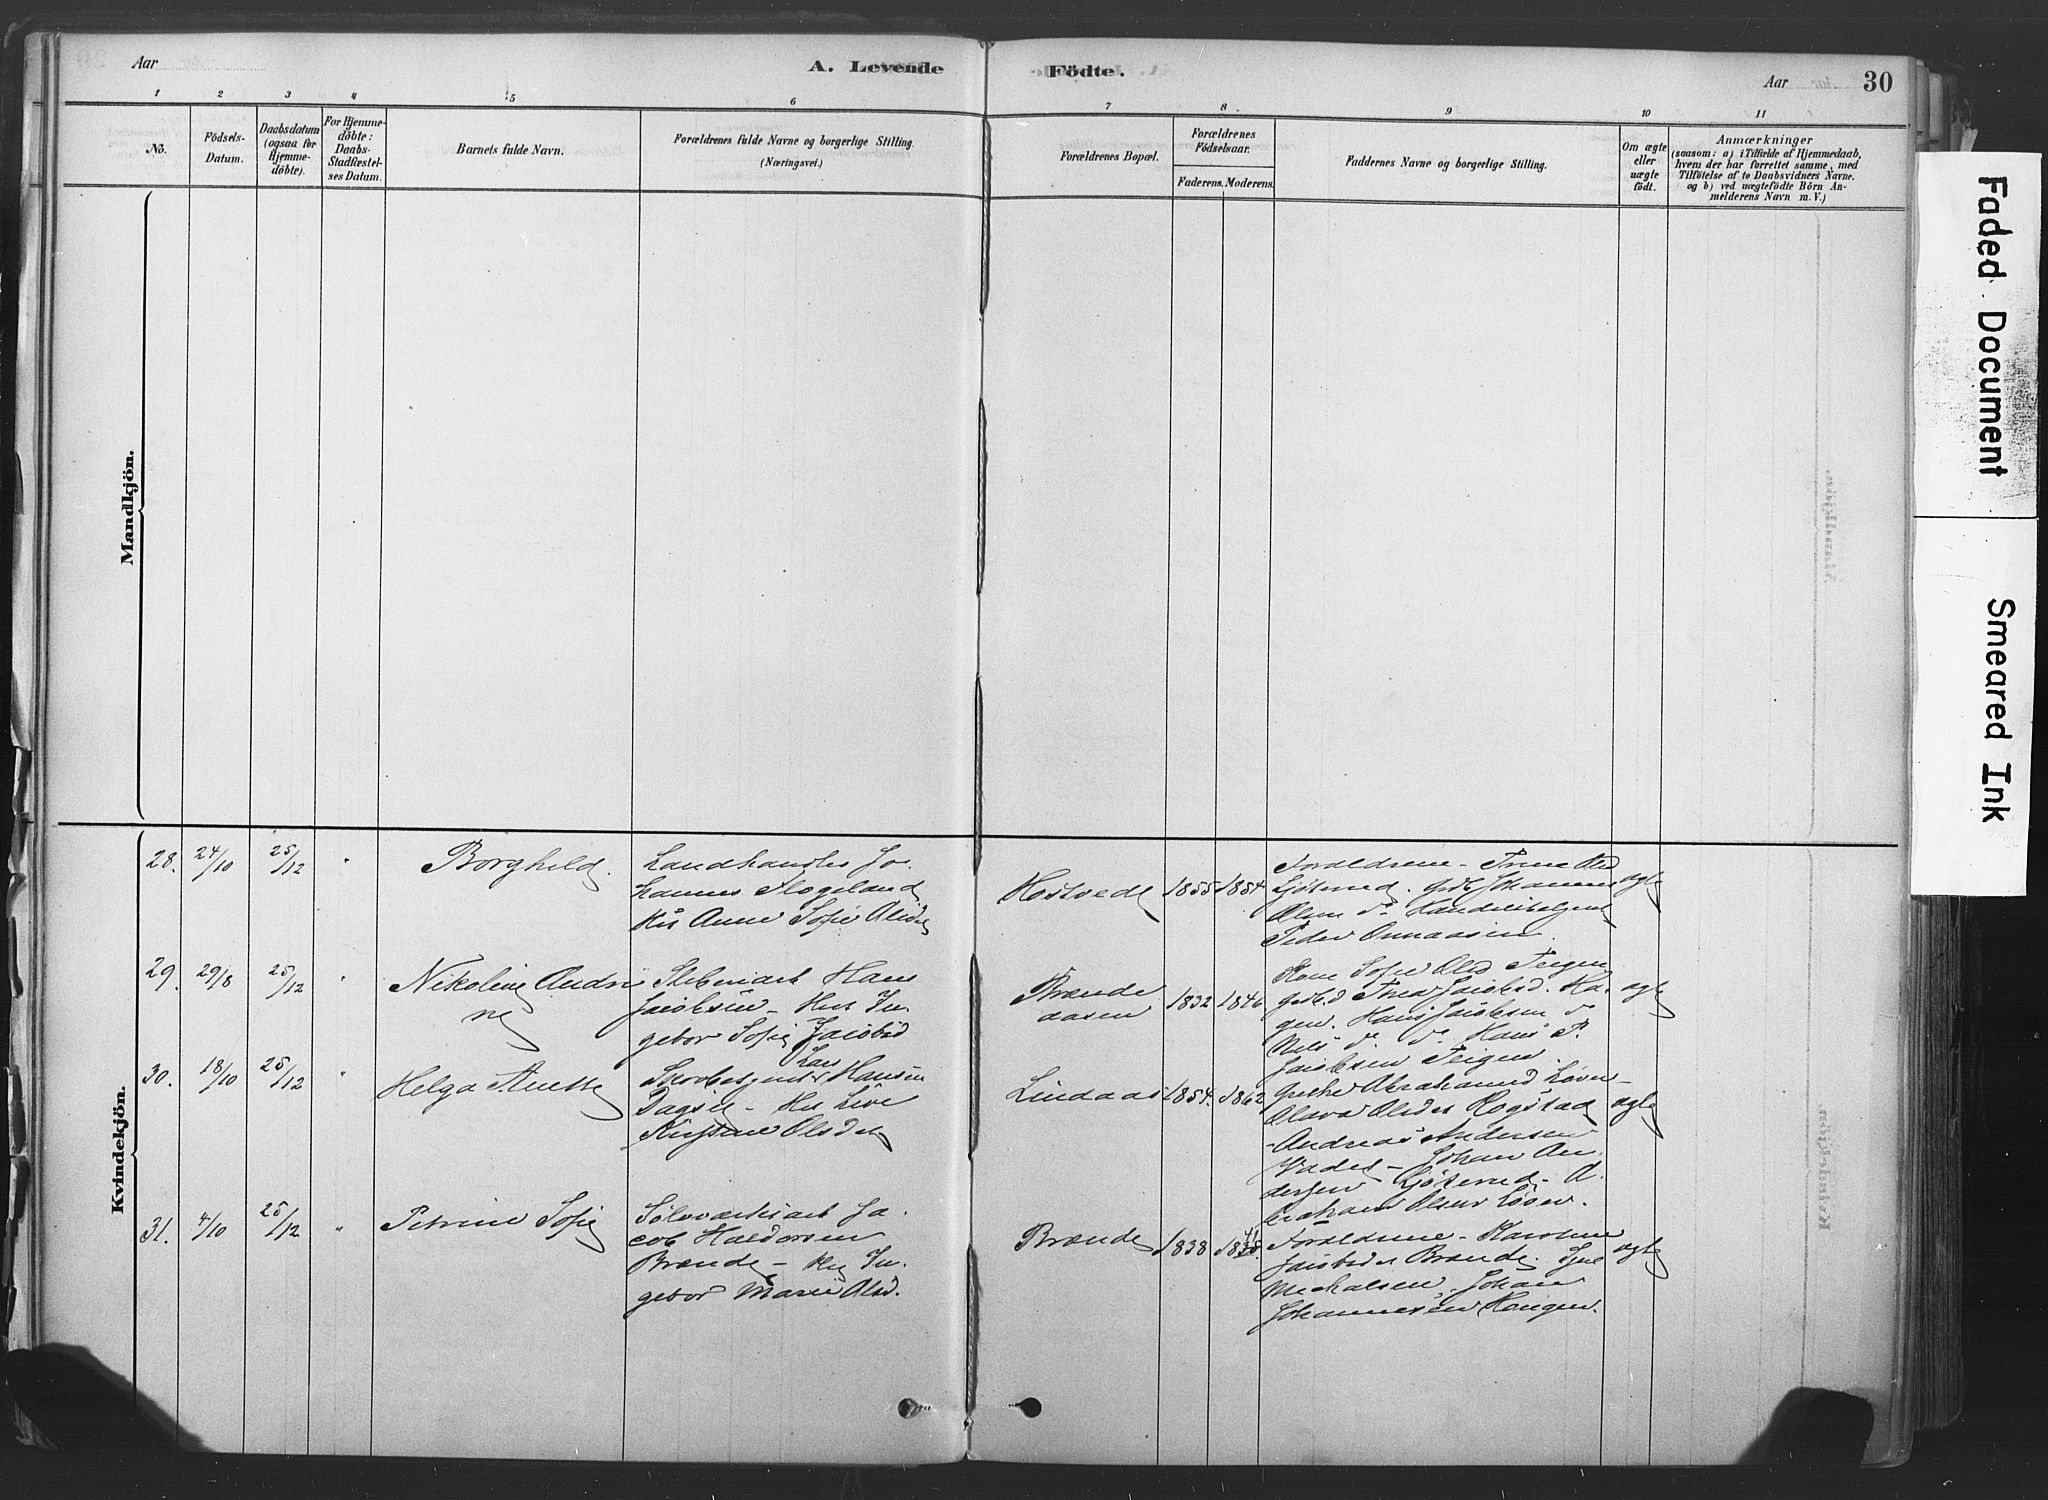 Aar
A. Levende
Födte.
Aar
30
1 2 3 4 5 6 7 8 9 10 11
No.
Födsels-
Datum.
Daabsdatum
(ogsaa for
Hjemme-
döbte).
For Hjemme-
döbte:
Daabs-
Stadfæstel-
ses Datum.
Barnets fulde Navn.
Forældrenes fulde Navne og borgerlige Stilling.
(Næringsvei.)
Forældrenes Bopæl.
Forældrenes
Födselsaar.
Faderens. Moderens.
Faddernes Navne og borgerlige Stilling.
Om ægte
eller
uægte
födt.
Anmærkninger
(saasom: a) i Tilfælde af Hjemmedaab,
hvem der har forrettet samme, med
Tilföielse af to Daabsvidners Navne.
og b) ved uægtefödte Börn An-
melderens Navn m. V.)
Mandkjön.
Kvindekjön.
28. 24/10 25/12 " Borghild.
Landhandler Jo-
hannes Flogeland
Anne Sofie Olsdr
Hostvedt 1855 1854
Forældrene -
Johannes
Olsen
Peder Ormaasen
ægte
29. 29/8 25/12 " Nikoline Andri
ne
Hans
Jacobsen - Hus In-
gebor Sofie Jacobsd
Brænde
aasen
1832 1846
Kone Sofie Olsd Teigen
Jacobsd. Ha-
gen. Hans Jacobsen do
Nils do do Hans P.
Jacobsen Teigen
ægte
30. 18/10 25/12 " Helga Anette
Lars
Hansen
Dagsli
Kirstine Olsdr
Lindaas 1854. 1862
Grethe Abrahamsd Løver-
Olava Olsdr Kogstad
Andreas Andersen
- Johan An
dersen - A-
braham Olsen Løver.
ægte
31. 4/10 25/12 " Petrine Sofie
Sølvverksarb Ja-
cob Haldorsen
Brænde - In-
gebor Marie Olsd.
Brænde 1838
Forældrene - Karoline
Jacobsdr Brænde.
Michalsen. Johan
Johannesen Haugen.
ægte
Faded Document
Smeared Ink